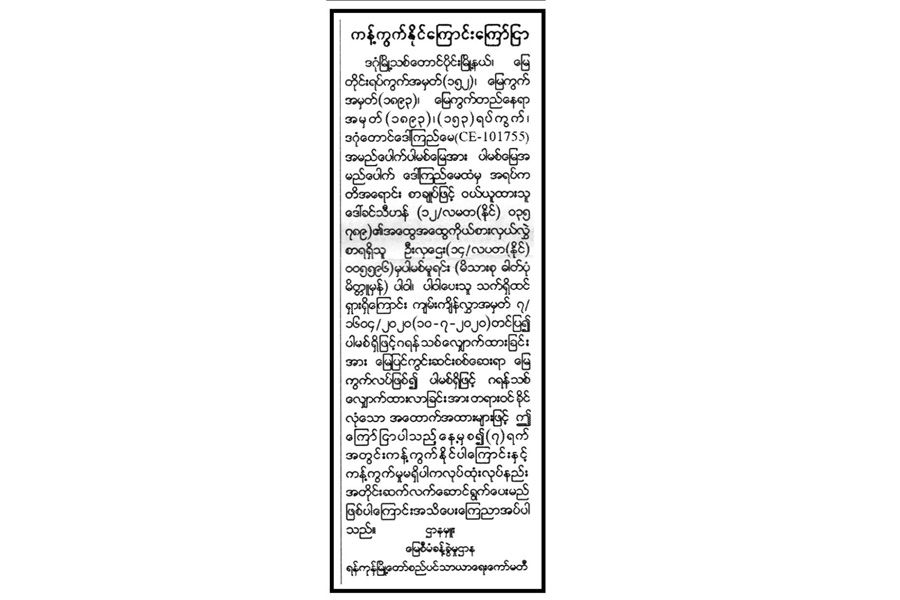 ကန့်ကွက်နိုင်ကြောင်းကြော်ငြာ
ဒဂုံမြို့သစ်တောင်ပိုင်းမြို့နယ်၊ မြေ
တိုင်းရပ်ကွက်အမှတ်(၁၅၂)၊ မြေကွက်
အမှတ်(၁၈၉၃)၊ မြေကွက်တည်နေရာ
အမှတ်(၁၈၉၃)၊(၁၅၃)ရပ်ကွက်၊
ဒဂုံတောင်ဒေါ်ကြည်မေ(CE-101755)
အမည်ပေါက်ပါမစ်မြေအား ပါမစ်မြေအ
မည်ပေါက် ဒေါ်ကြည်မေထံမှ အရပ်က
တိအရောင်း စာချုပ်ဖြင့် ဝယ်ယူထားသူ
ဒေါ်ခင်သီဟန် (၁၂/လမတ(နိုင်) ၀၃၅
၇၈၉)၏အထွေအထွေကိုယ်စားလှယ်လွှဲ
စာရရှိသူ ဦးလှဌေး(၁၄/လပတ(နိုင်)
၀၀၅၅၉၆)မှပါမစ်မူရင်း (မိသားစု ဓါတ်ပုံ
မိတ္တူမှန်) ပါဝါ၊ ပါဝါပေးသူ သက်ရှိထင်
ရှားရှိကြောင်း ကျမ်းကျိန်လွှာအမှတ် ၇/
၁၆၀၄/၂၀၂၀(၁၀-၇-၂၀၂၀)တင်ပြ၍
ပါမစ်ရှိဖြင့်ဂရန်သစ်လျှောက်ထားခြင်း
အား မြေပြင်ကွင်းဆင်းစစ်ဆေးရာ မြေ
ကွက်လပ်ဖြစ်၍ ပါမစ်ရှိဖြင့် ဂရန်သစ်
လျှောက်ထားလာခြင်းအားတရားဝင်ခိုင်
လုံသော အထောက်အထားများဖြင့် ဤ
ကြော်ငြာပါသည့်နေ့မှစ၍(၇)ရက်
အတွင်းကန့်ကွက်နိုင်ပါကြောင်းနှင့်
ကန့်ကွက်မှုမရှိပါကလုပ်ထုံးလုပ်နည်း
အတိုင်းဆက်လက်ဆောင်ရွက်ပေးမည်
ဖြစ်ပါကြောင်းအသိပေးကြေညာအပ်ပါ
သည်။ ဌာနမှူး
မြေစီမံခန့်ခွဲမှုဌာန
ရန်ကုန်မြို့တော်စည်ပင်သာယာရေးကော်မတီ